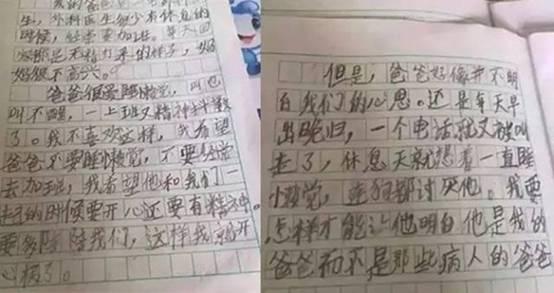 我的爸爸是一
生，外科医生很少有休息的
时候，经常要加班。每天回
家都是无精打采的样子，妈
妈很不高兴。
爸爸很爱睡懒觉，叫也
叫不醒，一上班又精神抖擞
了。我不喜欢这样，我希望
爸爸不要睡懒觉，不要经常
去加班，我希望他和我们一
起的时候要开心还要有精神。
要多陪陪我们，这样我就开
心极了。
但是，爸爸好像并不明
白我们的心思。还是每天早
出晚归，一个电话就又被叫
走了，休息天就想着一直睡
懒觉，连狗都讨厌他。我要
怎样才能让他明白他是我的
爸爸而不是那些病人的爸爸